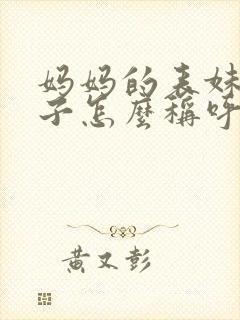 妈妈的表妹
子怎麼稱呼
黃又彭